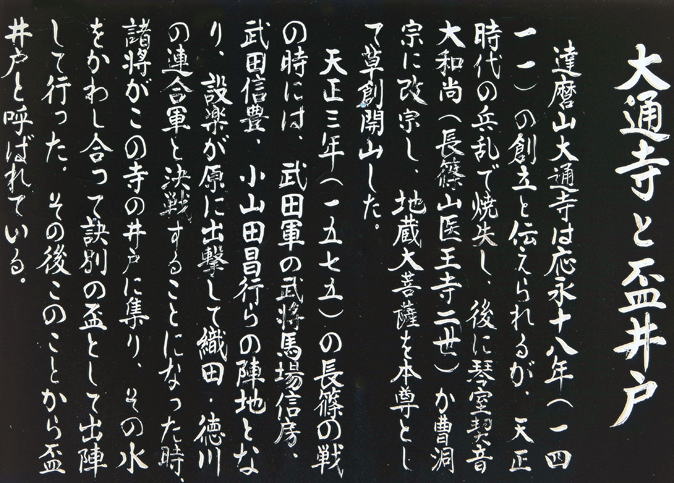 大通寺と盃井戸
達磨山大通寺は応永十八年（一四
一一）の創立と伝えられるが、天正
時代の兵乱で焼失し、後に琴室契音
大和尚（長篠山医王寺二世）が曹洞
宗に改宗し、地蔵大菩薩を本尊とし
て草創開山した。
天正三年（一五七五）の長篠の戦
の時には、武田軍の武将馬場信房、
武田信豊、小山田昌行らの陣地とな
り、設楽が原に出撃して織田・徳川
の連合軍と決戦することになった時、
諸将がこの寺の井戸に集り、その水
をかわし合って訣別の盃として出陣
して行った。その後このことから盃
井戸と呼ばれている。